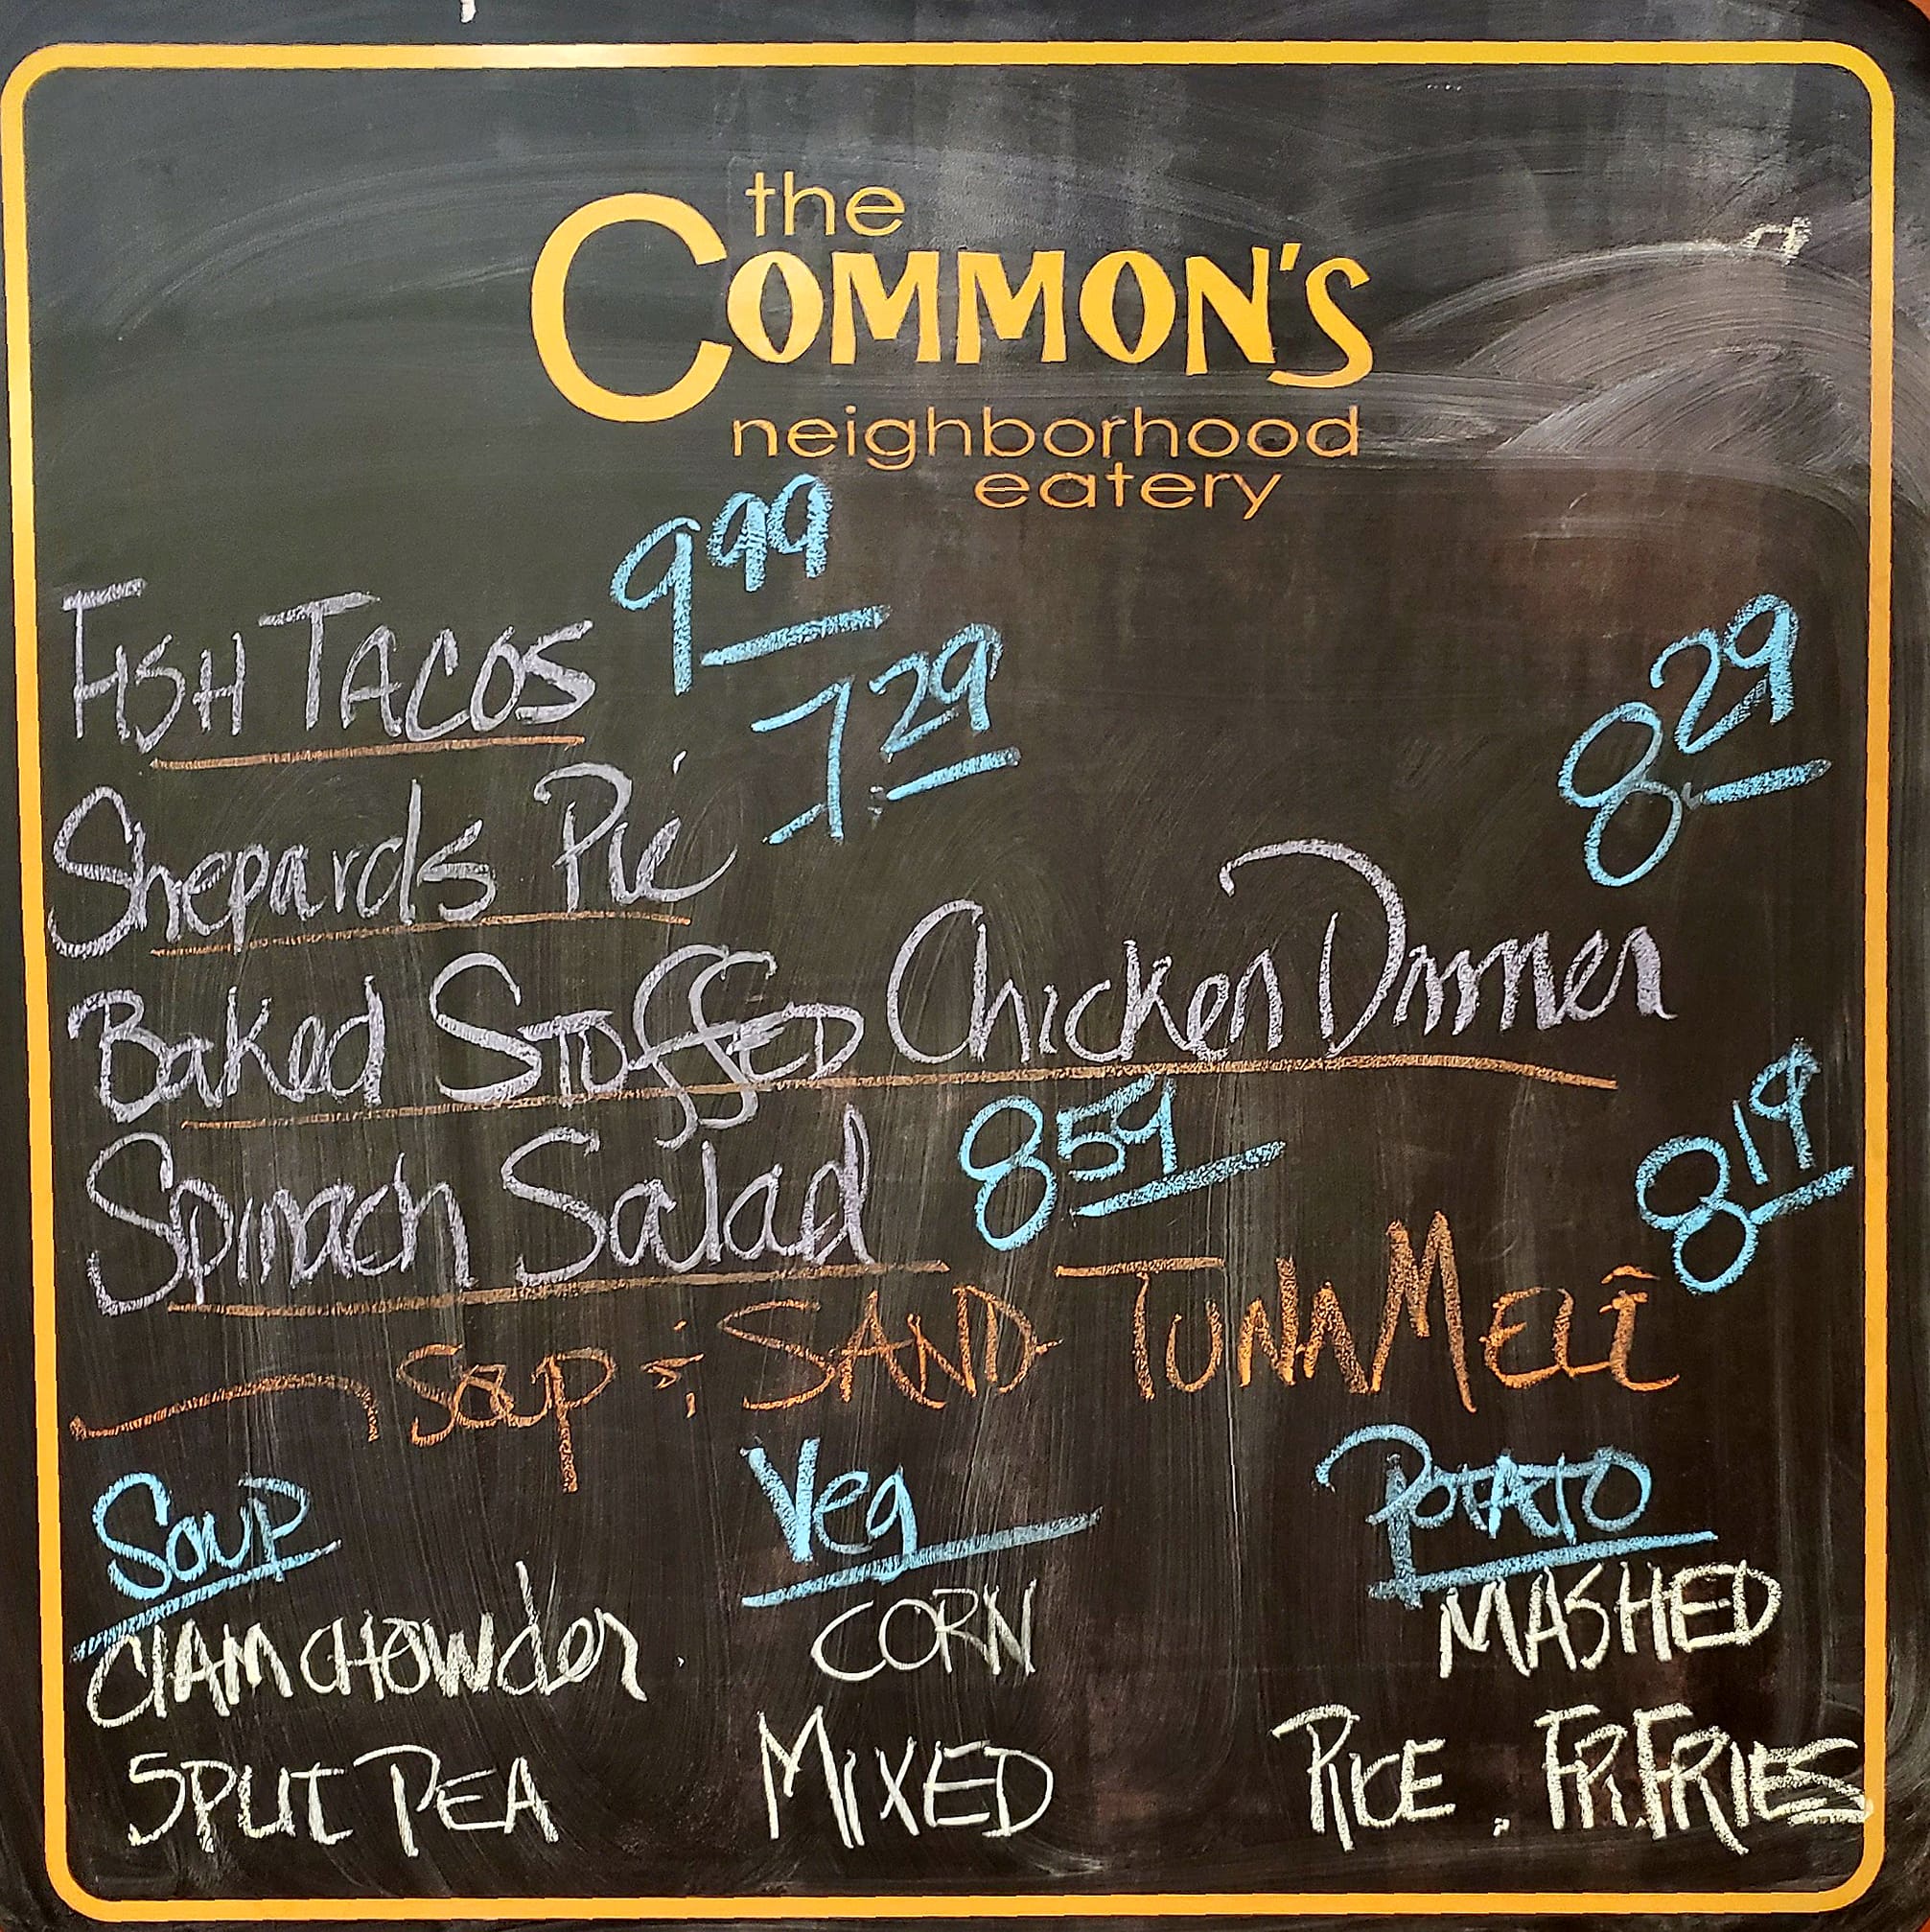 the
COMMON'S
neighborhood
eatery
FISH TACOS 9.99
Shepards Pie 7.29
Baked STUFFED Chicken Dinner 8.29
Spinach Salad 8.59
Soup & SAND TUNA MELT 8.19
Soup Veg POTATO
ClAM CHOWder CORN MASHED
SPLIT PEA MIXED RICE . FR.FRIES